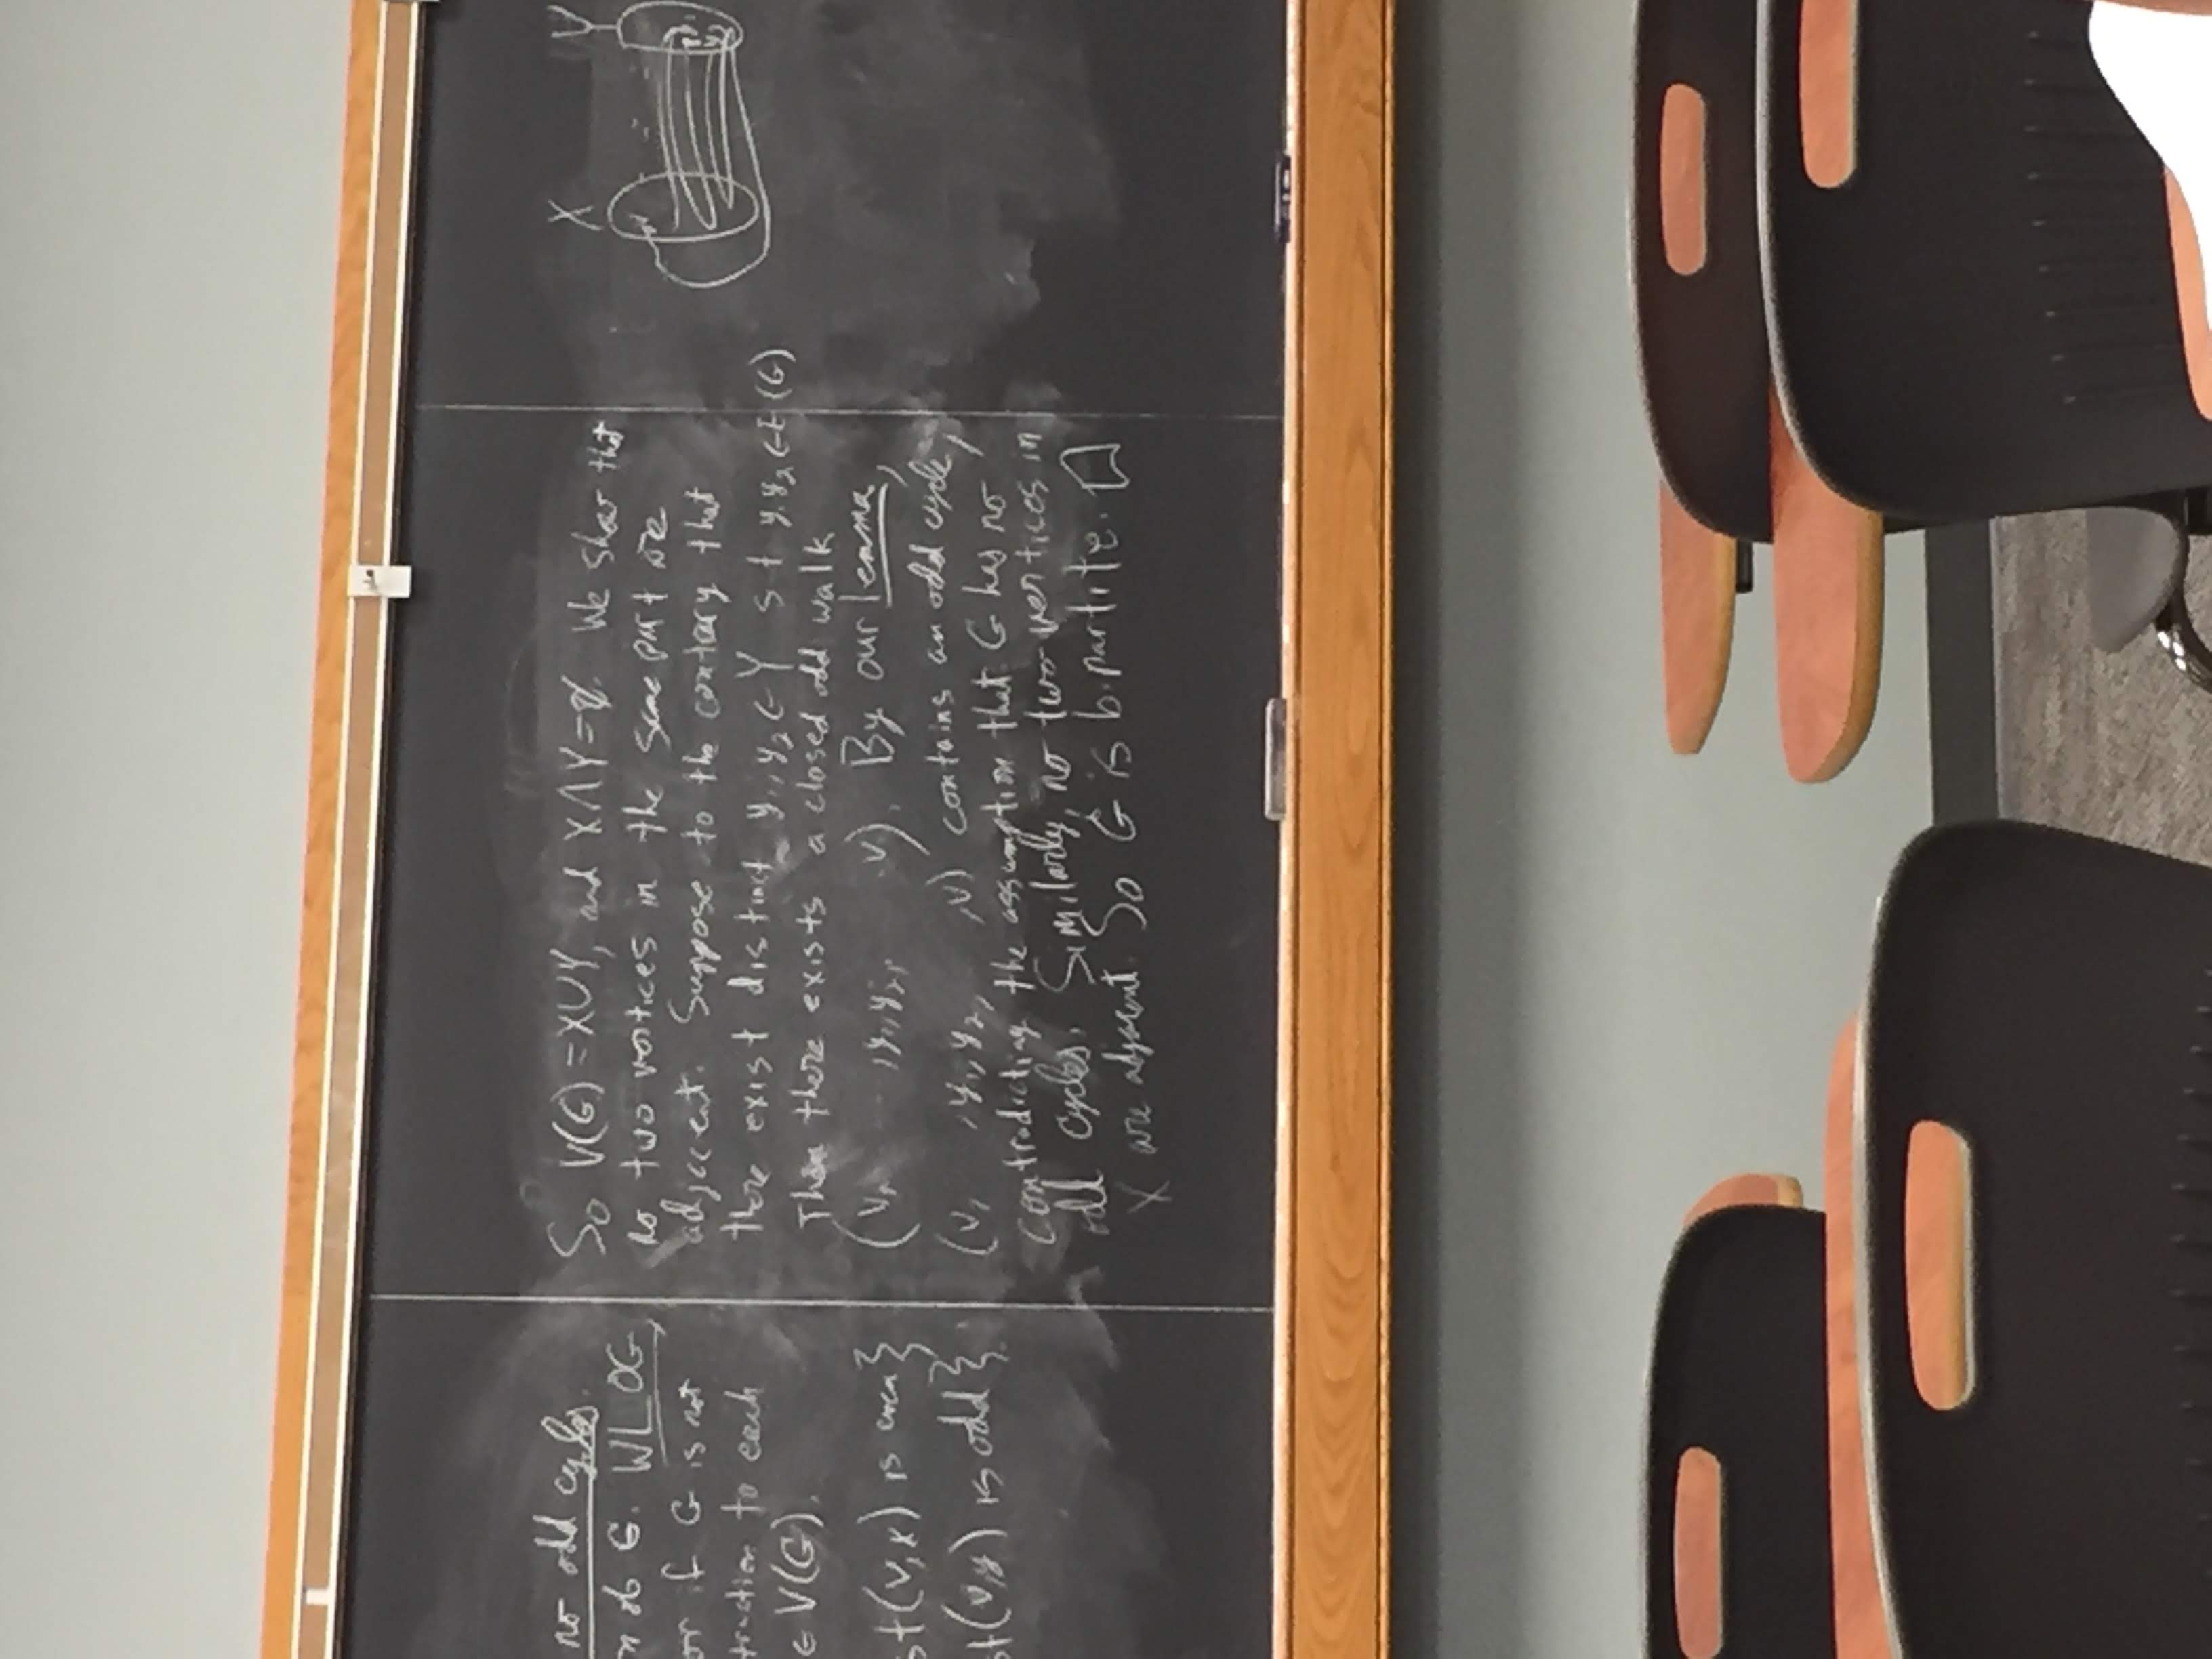 no odd cycles.
of G. WLOG,
or if G is not
truction to each
∈ V(G).
st(v,x) is even}
st(v,y) is odd}.
So V(G) = X∪Y, and X∩Y=∅. We show that
no two vertices in the same part are
adjacent. Suppose to the contrary that
there exist distinct y₁,y₂ ∈ Y st y₁y₂ ∈ E(G)
Then there exists a closed odd walk
(v, ,y₁,y₂, v). By our lemma,
(v, ,y₁,y₂, ,v) contains an odd cycle,
contradicting the assumption that G has no
odd cycles. Similarly, no two vertices in
X are adjacent. So G is bipartite. □
X Y
v
y₁
y₂